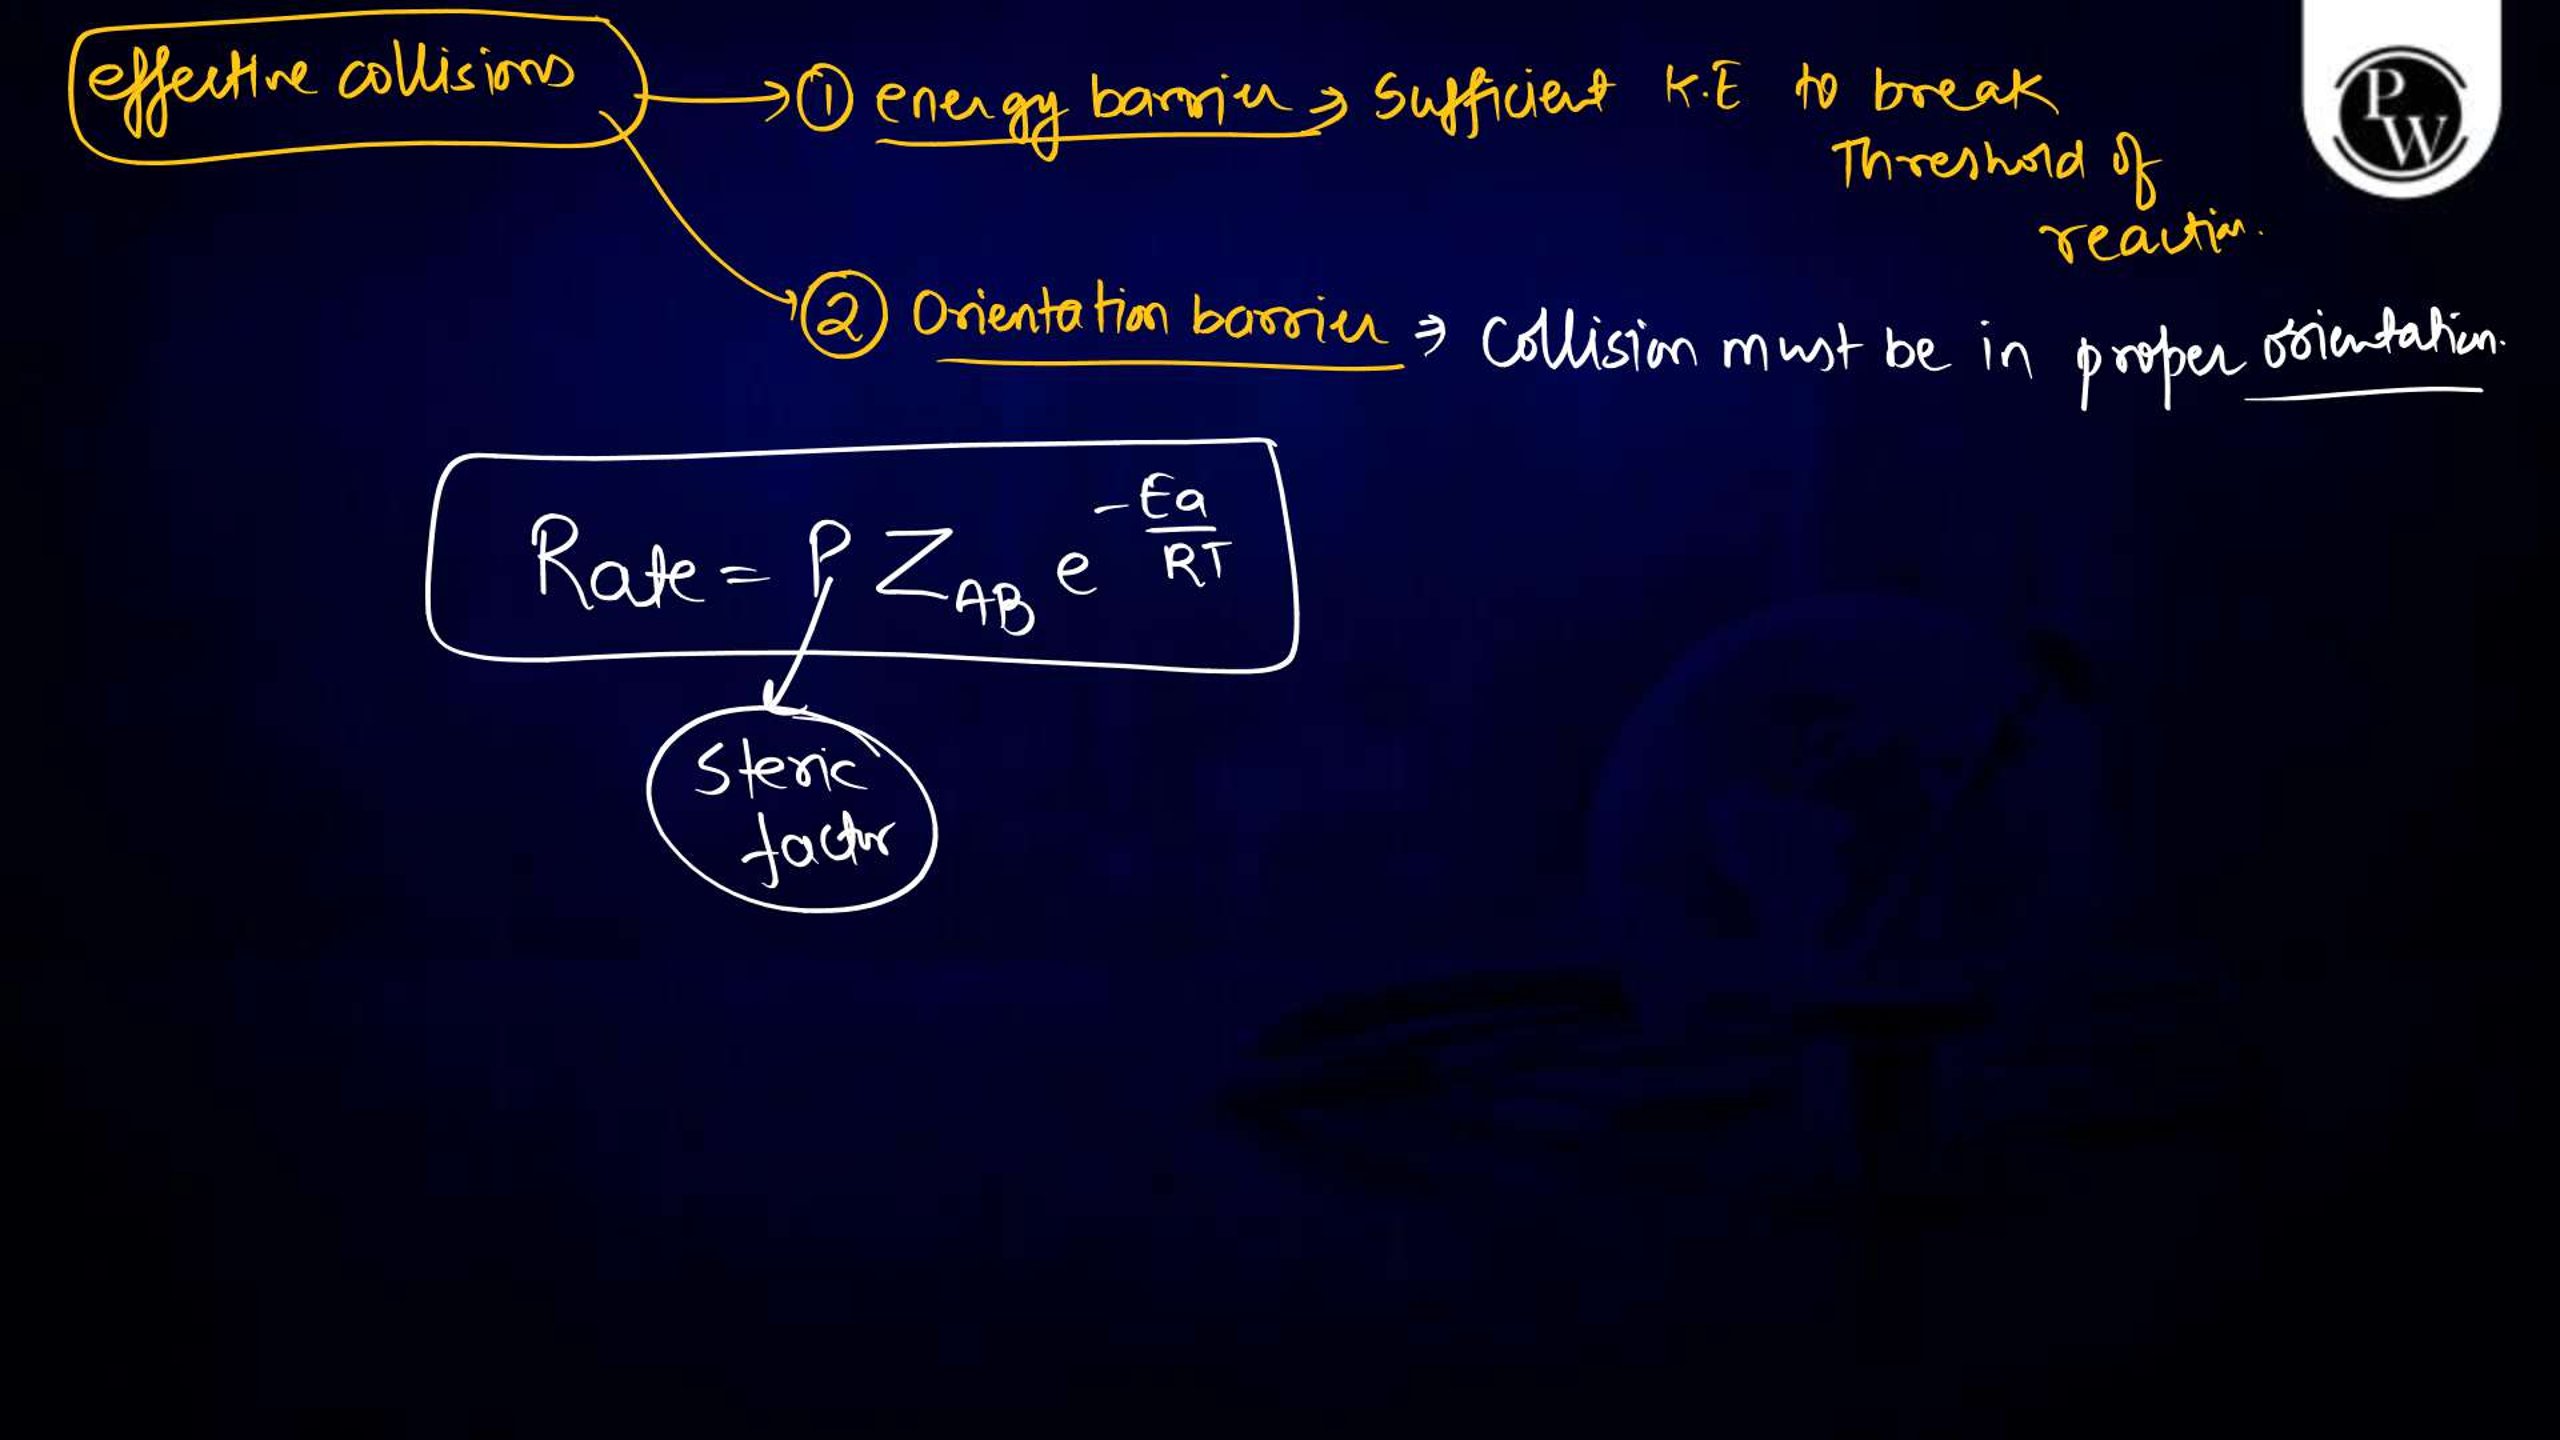 effective collisions → ① energy barrier ⇒ Sufficient K.E to break
Threshold of
reaction.
② Orientation barrier ⇒ Collision must be in proper orientation.
Rate = P Z_AB e^(-Ea/RT)
Steric
factor
PW